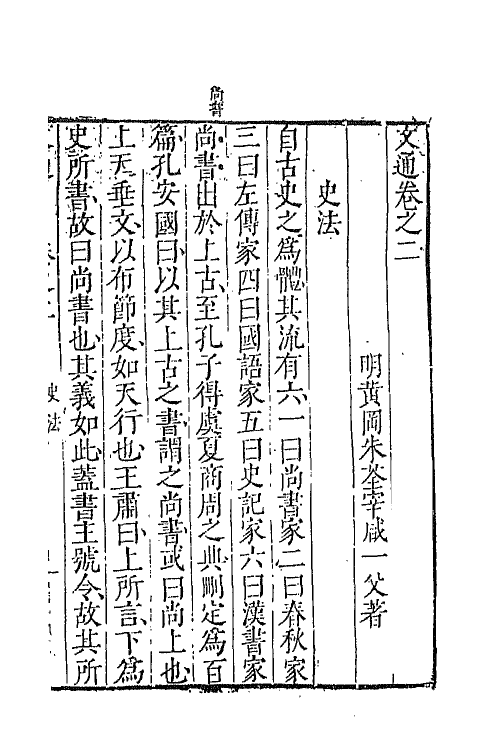 尚書
文通卷之二
明黃岡朱荃宰咸一父著
史法
自古史之爲體其流有六一曰尚書家二曰春秋家
三曰左傳家四曰國語家五曰史記家六曰漢書家
尚書出於上古至孔子得虞夏商周之典刪定爲百
篇孔安國曰以其上古之書謂之尚書或曰尚上也
上天垂文以布節度如天行也王肅曰上所言下爲
史所書故曰尚書也其義如此蓋書王號令故其所
史法